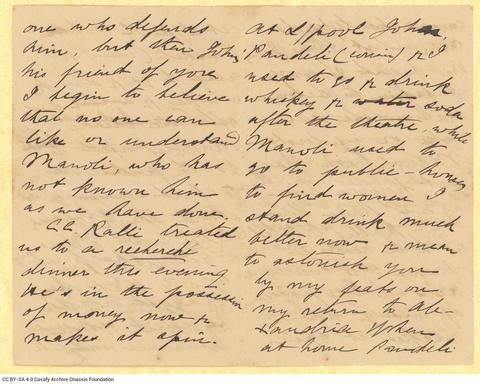 one who defends
him, but then John's
his friend of yore
I begin to believe
that no one can
like or understand
Manoli, who has
not known him
as we have done.
C.C. Ralli treated
us to a recherché
dinner this evening
He's in the possession
of money now &
makes it spin.
at L/pool John,
Pandeli (cousin) & I
used to go & drink
whiskey & water soda
after the theatre while
Manoli used to
go to public-houses
to find women I
stand drink much
better now & mean
to astonish you
by my feats on
my return to Ale-
xandria When
at home Pandeli
CC BY-SA 4.0 Cavafy Archive Onassis Foundation